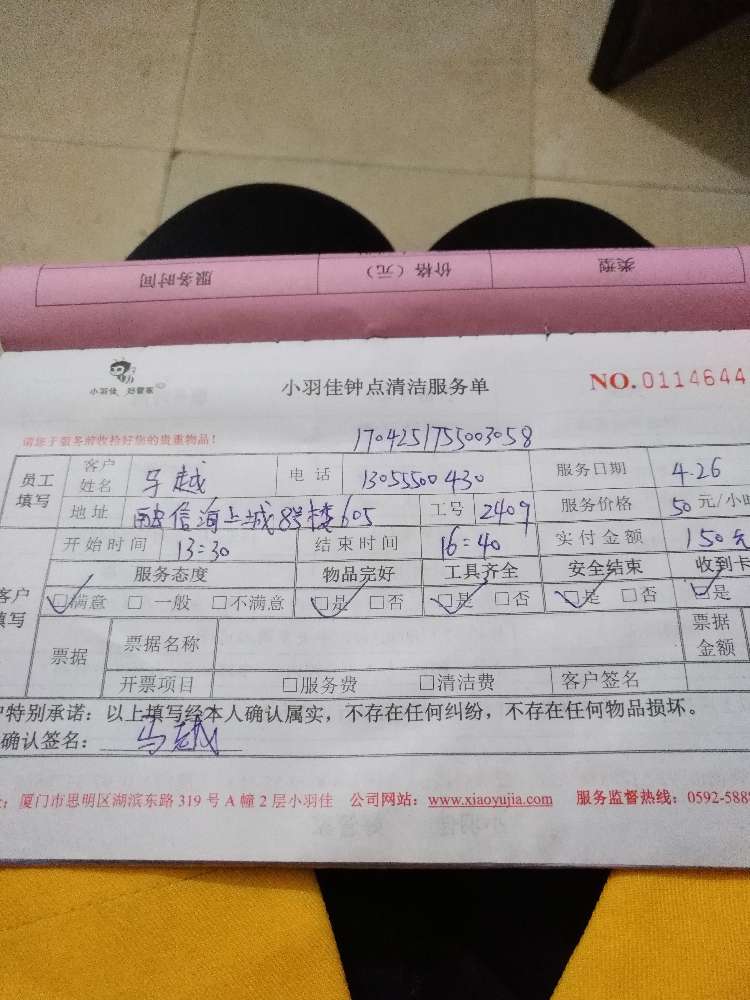 服务时间 价格（元） 类型
小羽佳 好管家
小羽佳钟点清洁服务单
NO.0114644
请您于服务前收拾好您的贵重物品！
1704251755003058
员工填写 客户姓名 马越 电话 13055500430 服务日期 4.26
地址 信海上城8号楼605 工号 2409 服务价格 50 元/小时
开始时间 13:30 结束时间 16:40 实付金额 150元
客户填写 服务态度 物品完好 工具齐全 安全结束 收到卡
☑满意 □一般 □不满意 ☑是 □否 ☑是 □否 ☑是 □否 ☑是
票据 票据名称 票据金额
开票项目 □服务费 □清洁费 客户签名
户特别承诺：以上填写经本人确认属实，不存在任何纠纷，不存在任何物品损坏。
确认签名：马越
厦门市思明区湖滨东路 319 号 A 幢 2 层小羽佳 公司网站：www.xiaoyujia.com 服务监督热线：0592-588